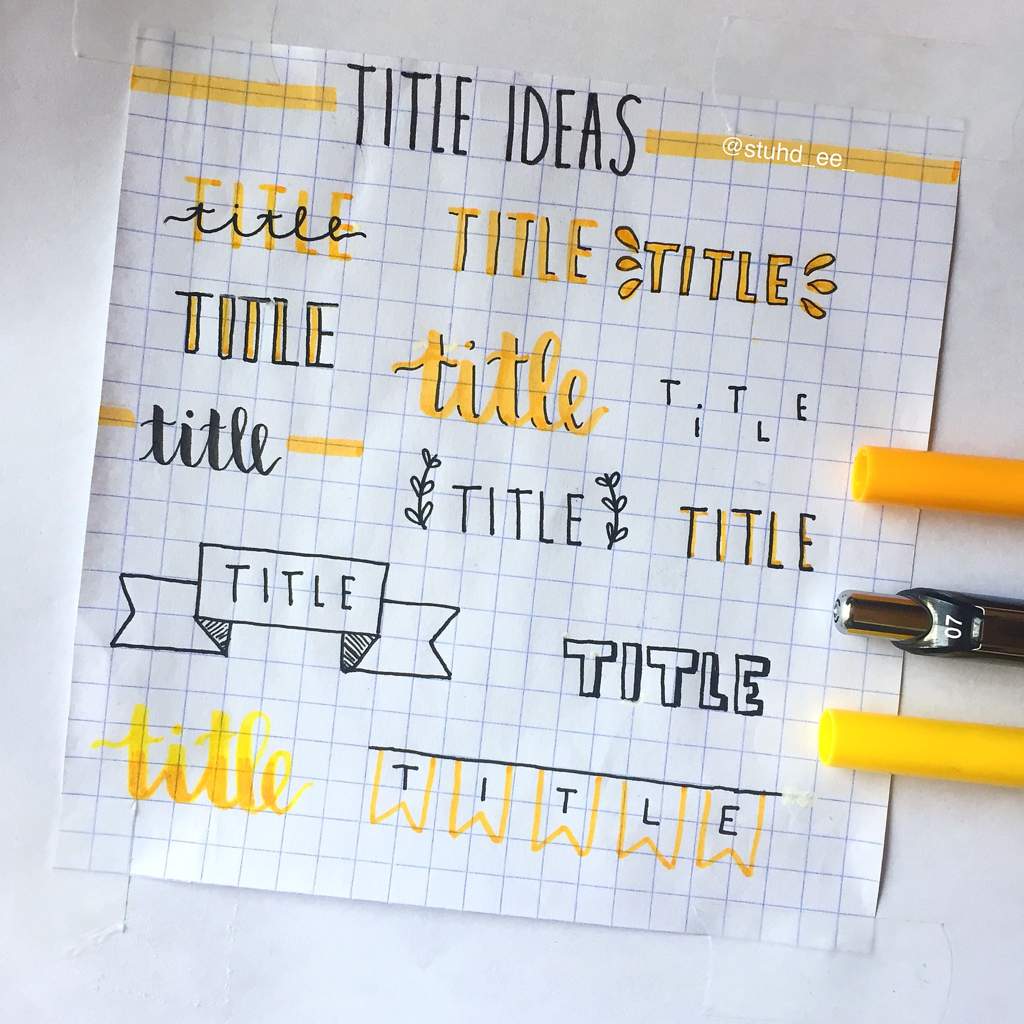 TITLE IDEAS
@stuhd_ee_
TITLE
title
TITLE
TITLE
TITLE
title
TiTLE
title
TITLE
TITLE
TITLE
TITLE
title
TITLE
07